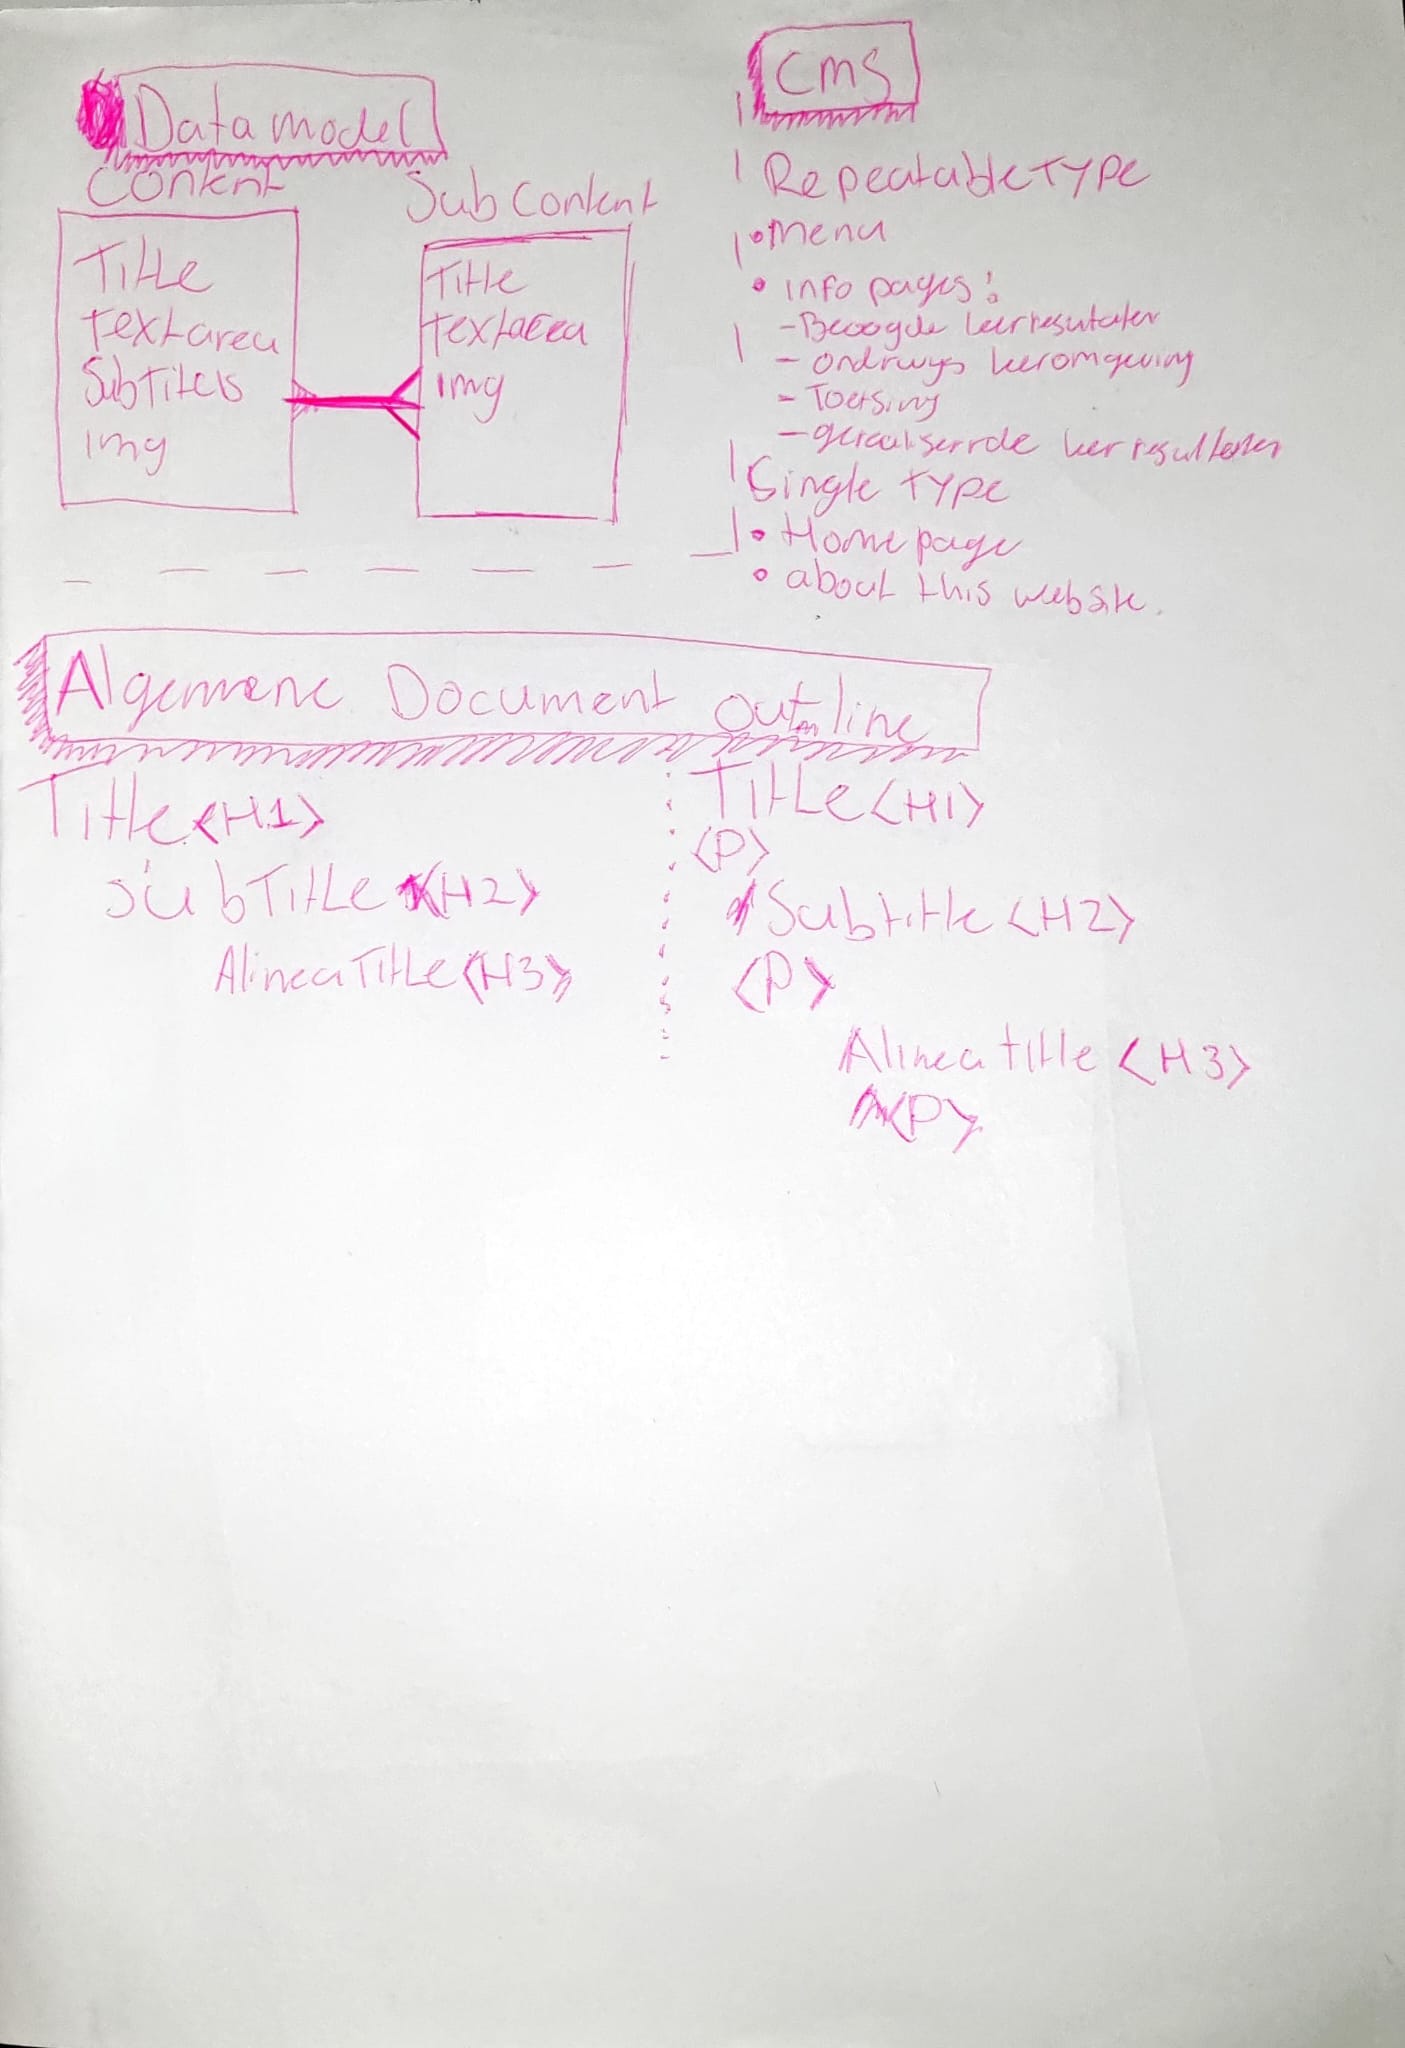 Datamodel
Content
Title
textarea
Subtitels
img
Sub Content
Title
textarea
img
CMS
Repeatable TYPE
• Menu
• info pages:
- Beoogde leerresultaten
- ondrwys leeromgeving
- Toetsing
- gerealiserrde leerresultaten
Single TYPE
• Homepage
• about this website.
Algemene Document outline
Title <H1>
SubTitle <H2>
Alinea Title <H3>
Title <H1>
<P>
Subtitle <H2>
<P>
Alinea title <H3>
<P>